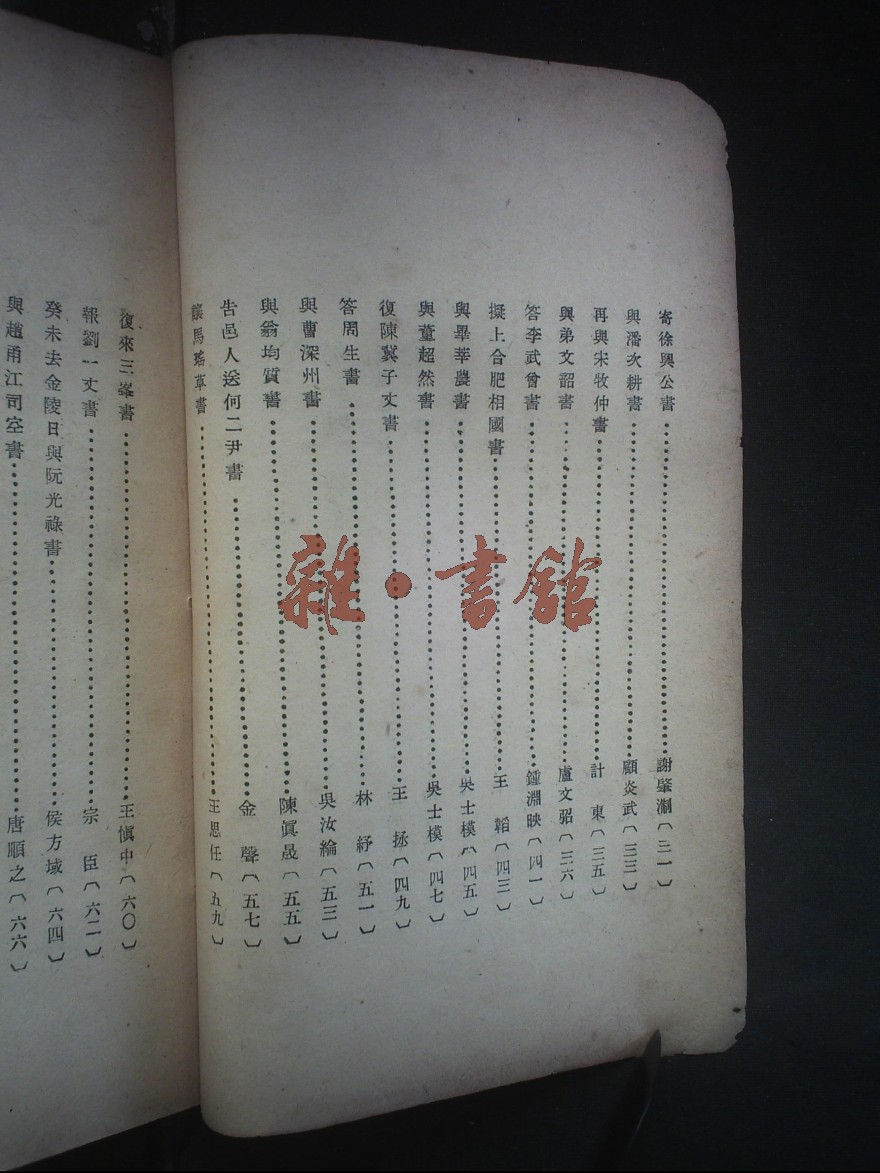 寄徐興公書……謝肇淛〔二一〕
與潘次耕書……顧炎武〔三三〕
再與宋牧仲書……計東〔三五〕
與弟文韶書……盧文弨〔三六〕
答李武曾書……鍾淵映〔四一〕
擬上合肥相國書……王韜〔四三〕
與畢華農書……吳士模〔四五〕
與董超然書……吳士模〔四七〕
復陳冀子丈書……王拯〔四九〕
答周生書……林紓〔五一〕
與曹深州書……吳汝綸〔五三〕
與翁均質書……陳眞晟〔五五〕
告邑人送何二尹書……金聲〔五七〕
讓馬瑤草書……王思任〔五九〕
復來三峯書……王愼中〔六〇〕
報劉一丈書……宗臣〔六二〕
癸未去金陵日與阮光祿書……侯方域〔六四〕
與趙甬江司空書……唐順之〔六六〕
雜·書館